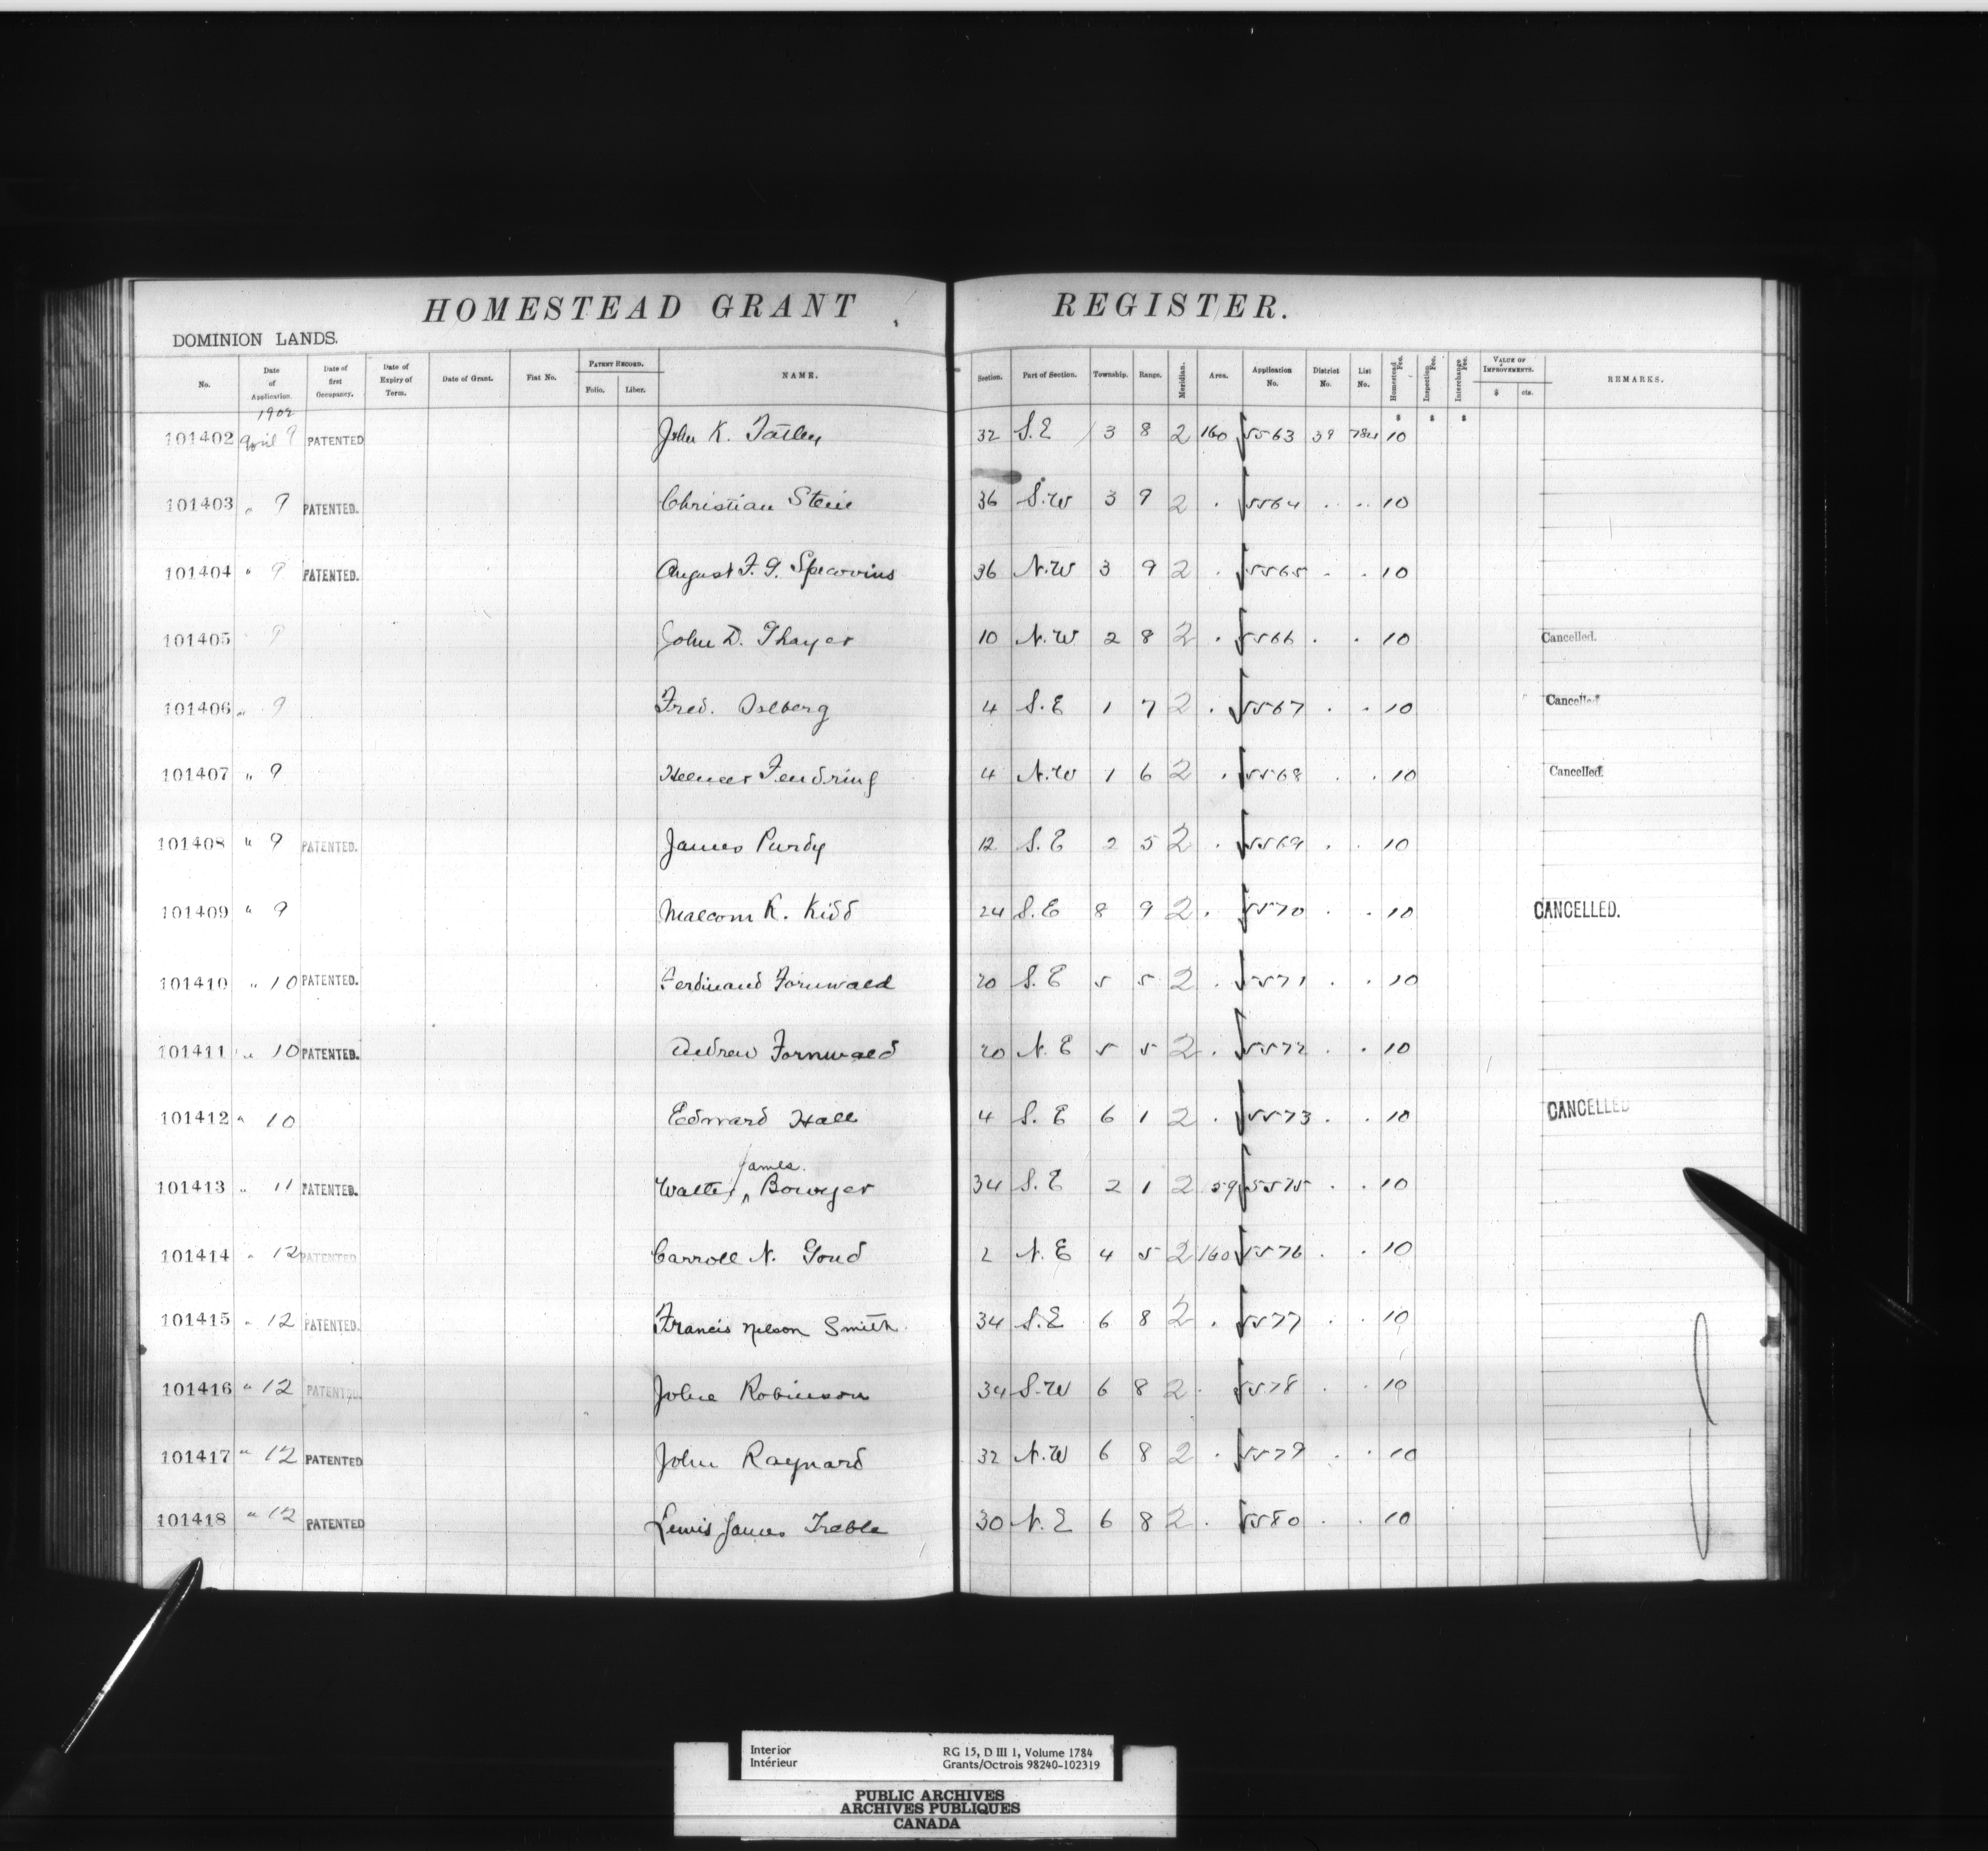 HOMESTEAD GRANT REGISTER.
DOMINION LANDS.
No. Date of Application. Date of first Occupancy. Date of Expiry of Term. Date of Grant. Fiat No. PATENT RECORD. Folio. Liber. NAME. Section. Part of Section. Township. Range. Meridian. Area. Application No. District No. List No. Homestead Fee. Inspection Fee. Interchange Fee. VALUE OF IMPROVEMENTS. $ cts. REMARKS.
1902
101402 April 9 PATENTED John K. 32 S.E 3 8 2 160 5563 39 784 10
101403 " 9 PATENTED. Christian Stein 36 S.W 3 9 2 . 5564 . . 10
101404 " 9 PATENTED. August F. G. 36 N.W 3 9 2 . 5565 . . 10
101405 9 John D. Thayer 10 N.W. 2 8 2 . 5566 . . 10 Cancelled.
101406 " 9 Fred. 4 S.E 1 7 2 . 5567 . . 10 Cancelled
101407 " 9 Fendring 4 N.W 1 6 2 . 5568 . . 10 Cancelled.
101408 " 9 PATENTED. James Purdy 12 S.E 2 5 2 . 5569 . . 10
101409 " 9 Malcom R. Kidd 24 S.E 8 9 2 . 5570 . . 10 CANCELLED.
101410 " 10 PATENTED. Ferdinand Fornwald 20 S.E 5 5 2 . 5571 . . 10
101411 " 10 PATENTED. Andrew Fornwald 20 N.E 5 5 2 . 5572 . . 10
101412 " 10 Edward Hall 4 S.E 6 1 2 . 5573 . . 10 CANCELLED
James.
101413 " 11 PATENTED. Walter Bowyer 34 S.E 2 1 2 5575 . . 10
101414 " 12 PATENTED Carroll N. Goud 2 N.E 4 5 2 160 5576 . . 10
101415 " 12 PATENTED. Francis Nelson Smith 34 S.E 6 8 2 . 5577 . . 10
101416 " 12 PATENTED. John Robinson 34 S.W 6 8 2 . 5578 . . 10
101417 " 12 PATENTED John Raynard 32 N.W 6 8 2 . 5579 . . 10
101418 " 12 PATENTED Lewis James Treble 30 N.E 6 8 2 . 5580 . . 10
Interior RG 15, D III 1, Volume 1784
Intérieur Grants/Octrois 98240-102319
PUBLIC ARCHIVES
ARCHIVES PUBLIQUES
CANADA